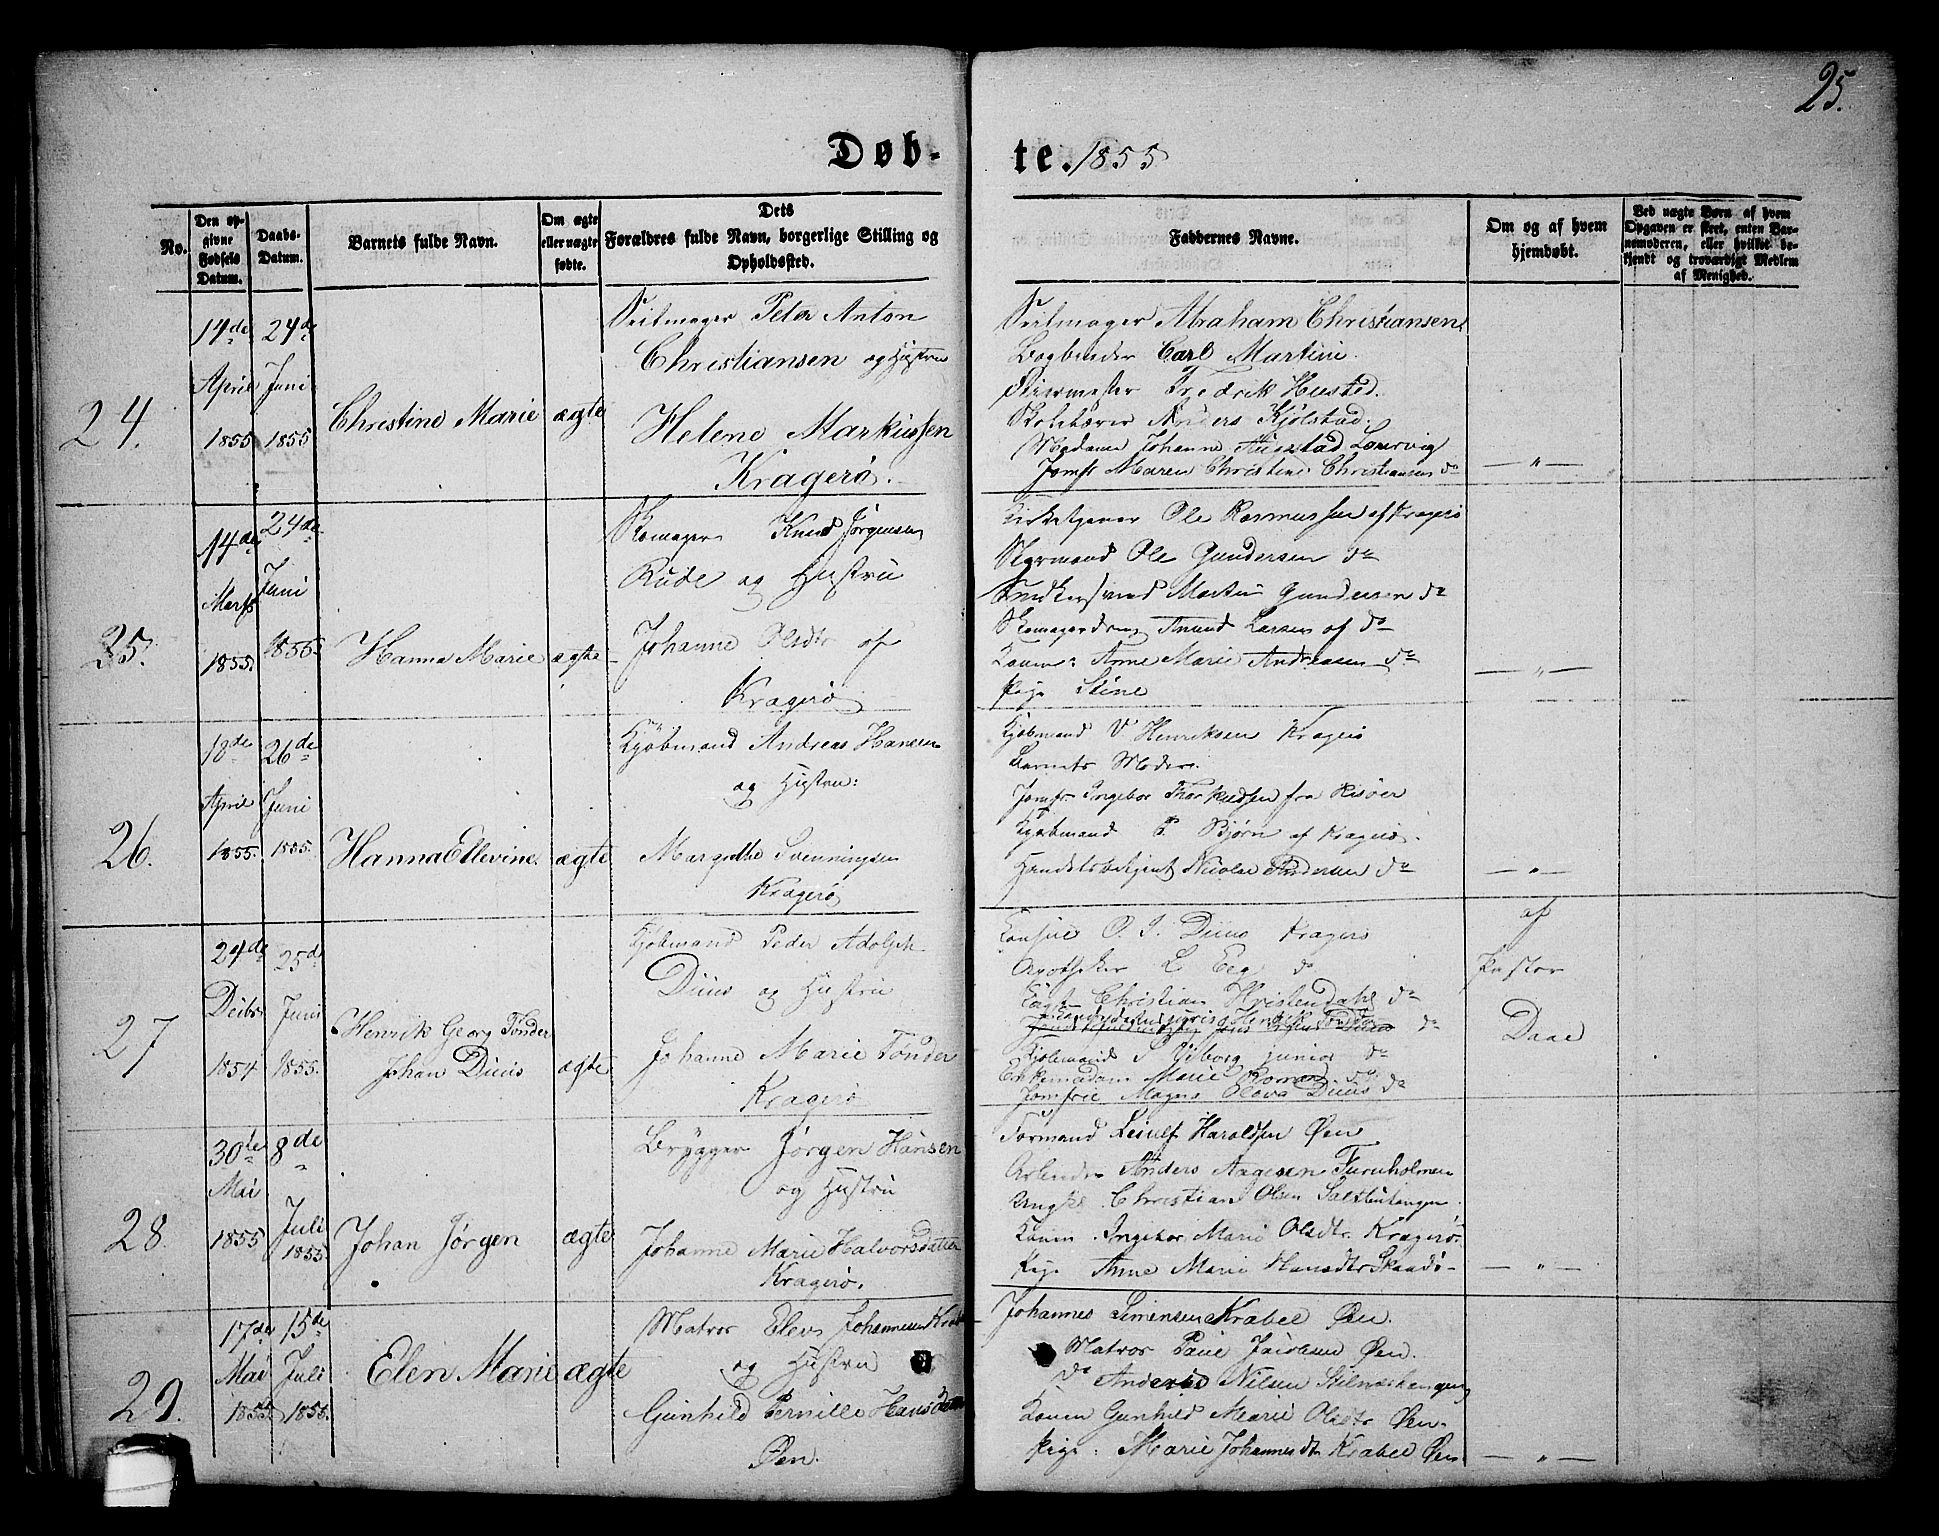 25.
Døb-
te. 1855
No.
Den op-
givne
Fødsels
Datum.
Daabs-
Datum.
Barnets fulde Navn.
Om ægte
eller uægte
fødte.
Dets
Forældres fulde Navn, borgerlige Stilling og
Opholdssted.
Faddernes Navne.
Om og af hvem
hjemdøbt.
Ved uægte Børn af hvem
Opgaven er skeet, enten Bar-
nemoderen, eller hvilket be-
kjendt og troværdigt Medlem
af Menighed.
24.
14de
April
1855
24de
Juni
1855
Christine Marie
ægte
Seilmager Peter Anton
Christiansen og Hustru
Helene Markussen
Kragerø.
Seilmager Abraham Christiansen
Bogbinder Carl Martini
Fredrik Husted.
Anders Kjølstad.
Madame Johanne
Jomf. Maren Christine Christiansen do
— " —
25.
14de
Marts
1855
24de
Juni
1855
Hanna Marie
ægte
Skomager Knud Jørgensen
Rude og Hustru
Johanne Olsdtr af
Kragerø
Ole Rasmussen af Kragerø
Styrmand Ole Gundersen do
Snedkersvend Martin Gundersen do
Skomagerdreng Amund Larsen af do
Konen: Anne Marie Andreasen do
Pige Stine
— " —
26.
18de
April
1855
26de
Juni
1855.
Hanna Ellevine
ægte
Kjøbmand Andreas Hansen
og Hustru:
Margrethe Svenningsen
Kragerø
Kjøbmand V Henriksen Kragerø
Barnets Moder.
Jomf. Ingebor Thorkildsen fra Risøer
Kjøbmand P. Bjørn af Kragerø.
Handelsbetjent Nicolai Pedersen do
— " —
27
24de
Decbr
1854
25de
Juni
1855.
Henrik Georg Tønder
Johan Duus
ægte
Kjøbmand Peder Adolph
Duus og Hustru
Johanne Marie Tønder
Kragerø
O. J. Duus Kragerø
Apotheker L Eeg do
Christian Hristendahl do
Henrik Tønder do
Kjøbmand P Viborg junior do
Enkemadam Marie do
Jomfrue Magna Olava Duus do
af
Pastor
Daae
28.
30te
Mai
1855
8de
Juli
1855
Johan Jørgen
ægte
Brygger Jørgen Hansen
og Hustru
Johanne Marie Halvorsdatter
Kragerø.
Formand Leiulf Haroldsen Øen
Anders Aagesen Furuholmen
Ungkl. Christian Olsen
Konen Ingebor Marie Olsdtr. Kragerø.
Pige Anne Marie Hansdtr Skaadø
— " —
29.
17de
Mai
1855
15de
Juli
1855.
Elen Marie
ægte
Matros Elevs Johannesen
og Hustru
Gunhild Pernille Hansd
Øen.
Johannes Simensen Krabel Øen.
Matros Paul Jacobsen Øen.
do Anders Nilsen
Konen Gunhild Marie Olsdtr Øen.
Pige: Marie Johannesdtr Krabel Øen.
— " —